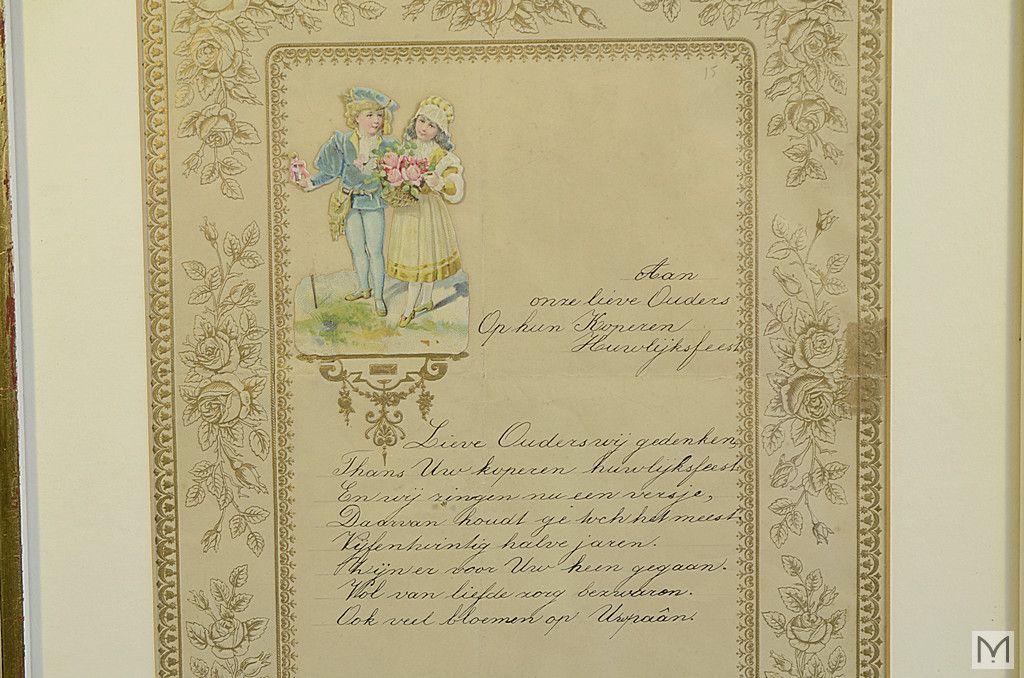 15
Aan
onze lieve Ouders
Op hun Koperen
Huwlijksfeest
Lieve Ouders wij gedenken
Thans Uw koperen huwlijksfeest,
En wij zingen nu een versje,
Daarvan houdt ge toch het meest.
Vijfentwintig halve jaren.
Zijn er voor Uw heen gegaan.
Vol van liefde zorg bezwaren.
Ook veel bloemen op Uw paân.
M